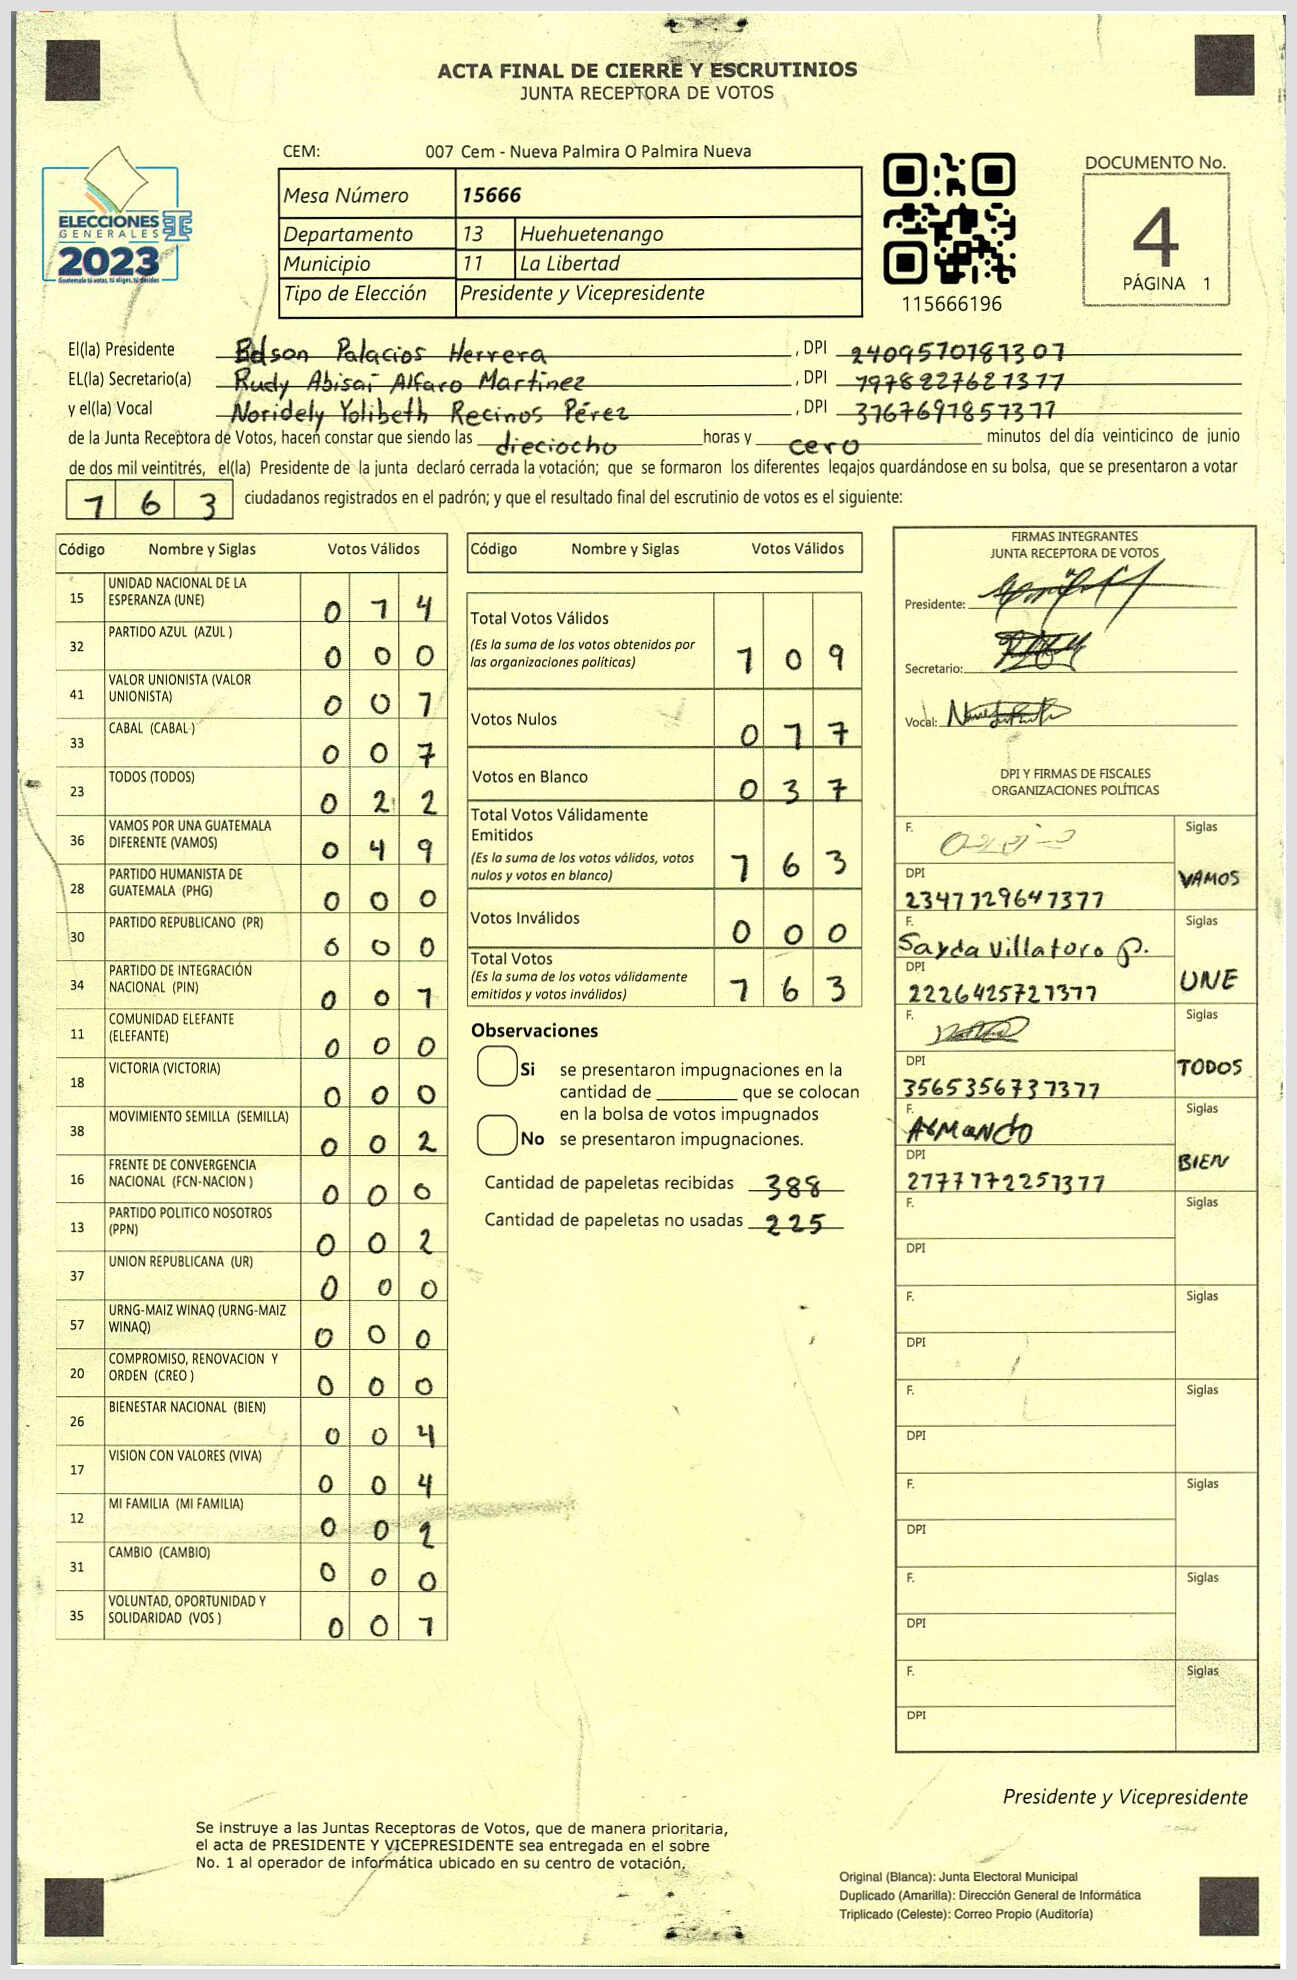 ACTA FINAL DE CIERRE Y ESCRUTINIOS
JUNTA RECEPTORA DE VOTOS
CEM: 007 Cem - Nueva Palmira O Palmira Nueva
ELECCIONES
GENERALES
2023
Guatemala tú votas, tú eliges, tú decides
Mesa Número 15666
Departamento 13 Huehuetenango
Municipio 11 La Libertad
Tipo de Elección Presidente y Vicepresidente
115666196
DOCUMENTO No.
4
PÁGINA 1
El(la) Presidente Edson Palacios Herrera , DPI 2409570181307
EL(la) Secretario(a) Rudy Abisaí Alfaro Martínez , DPI 1978227621311
y el(la) Vocal Noridely Yolibeth Recinos Pérez , DPI 3161691851311
de la Junta Receptora de Votos, hacen constar que siendo las dieciocho horas y cero minutos del día veinticinco de junio
de dos mil veintitrés, el(la) Presidente de la junta declaró cerrada la votación; que se formaron los diferentes legajos guardándose en su bolsa, que se presentaron a votar
1 6 3 ciudadanos registrados en el padrón; y que el resultado final del escrutinio de votos es el siguiente:
Código Nombre y Siglas Votos Válidos
15 UNIDAD NACIONAL DE LA
ESPERANZA (UNE) 0 1 4
32 PARTIDO AZUL (AZUL ) 0 0 0
41 VALOR UNIONISTA (VALOR
UNIONISTA) 0 0 1
33 CABAL (CABAL ) 0 0 7
23 TODOS (TODOS) 0 2 2
36 VAMOS POR UNA GUATEMALA
DIFERENTE (VAMOS) 0 4 9
28 PARTIDO HUMANISTA DE
GUATEMALA (PHG) 0 0 0
30 PARTIDO REPUBLICANO (PR) 0 0 0
34 PARTIDO DE INTEGRACIÓN
NACIONAL (PIN) 0 0 1
11 COMUNIDAD ELEFANTE
(ELEFANTE) 0 0 0
18 VICTORIA (VICTORIA) 0 0 0
38 MOVIMIENTO SEMILLA (SEMILLA) 0 0 2
16 FRENTE DE CONVERGENCIA
NACIONAL (FCN-NACION ) 0 0 0
13 PARTIDO POLITICO NOSOTROS
(PPN) 0 0 2
37 UNION REPUBLICANA (UR) 0 0 0
57 URNG-MAIZ WINAQ (URNG-MAIZ
WINAQ) 0 0 0
20 COMPROMISO, RENOVACION Y
ORDEN (CREO ) 0 0 0
26 BIENESTAR NACIONAL (BIEN) 0 0 4
17 VISION CON VALORES (VIVA) 0 0 4
12 MI FAMILIA (MI FAMILIA) 0 0 2
31 CAMBIO (CAMBIO) 0 0 0
35 VOLUNTAD, OPORTUNIDAD Y
SOLIDARIDAD (VOS ) 0 0 1
Código Nombre y Siglas Votos Válidos
Total Votos Válidos
(Es la suma de los votos obtenidos por
las organizaciones políticas) 1 0 9
Votos Nulos 0 1 7
Votos en Blanco 0 3 7
Total Votos Válidamente
Emitidos
(Es la suma de los votos válidos, votos
nulos y votos en blanco) 1 6 3
Votos Inválidos 0 0 0
Total Votos
(Es la suma de los votos válidamente
emitidos y votos inválidos) 1 6 3
Observaciones
Si se presentaron impugnaciones en la
cantidad de ________ que se colocan
en la bolsa de votos impugnados
No se presentaron impugnaciones.
Cantidad de papeletas recibidas 388
Cantidad de papeletas no usadas 225
FIRMAS INTEGRANTES
JUNTA RECEPTORA DE VOTOS
Presidente:
Secretario:
Vocal:
DPI Y FIRMAS DE FISCALES
ORGANIZACIONES POLÍTICAS
F. Siglas
DPI VAMOS
F. Sayda Villatoro P. Siglas
DPI UNE
2226425721311
F. Siglas
DPI TODOS
3565356731311
F. Armando Siglas
DPI BIEN
F. Siglas
DPI
F. Siglas
DPI
F. Siglas
DPI
F. Siglas
DPI
F. Siglas
DPI
F. Siglas
DPI
Presidente y Vicepresidente
Se instruye a las Juntas Receptoras de Votos, que de manera prioritaria,
el acta de PRESIDENTE Y VICEPRESIDENTE sea entregada en el sobre
No. 1 al operador de informática ubicado en su centro de votación.
Original (Blanca): Junta Electoral Municipal
Duplicado (Amarilla): Dirección General de Informática
Triplicado (Celeste): Correo Propio (Auditoría)